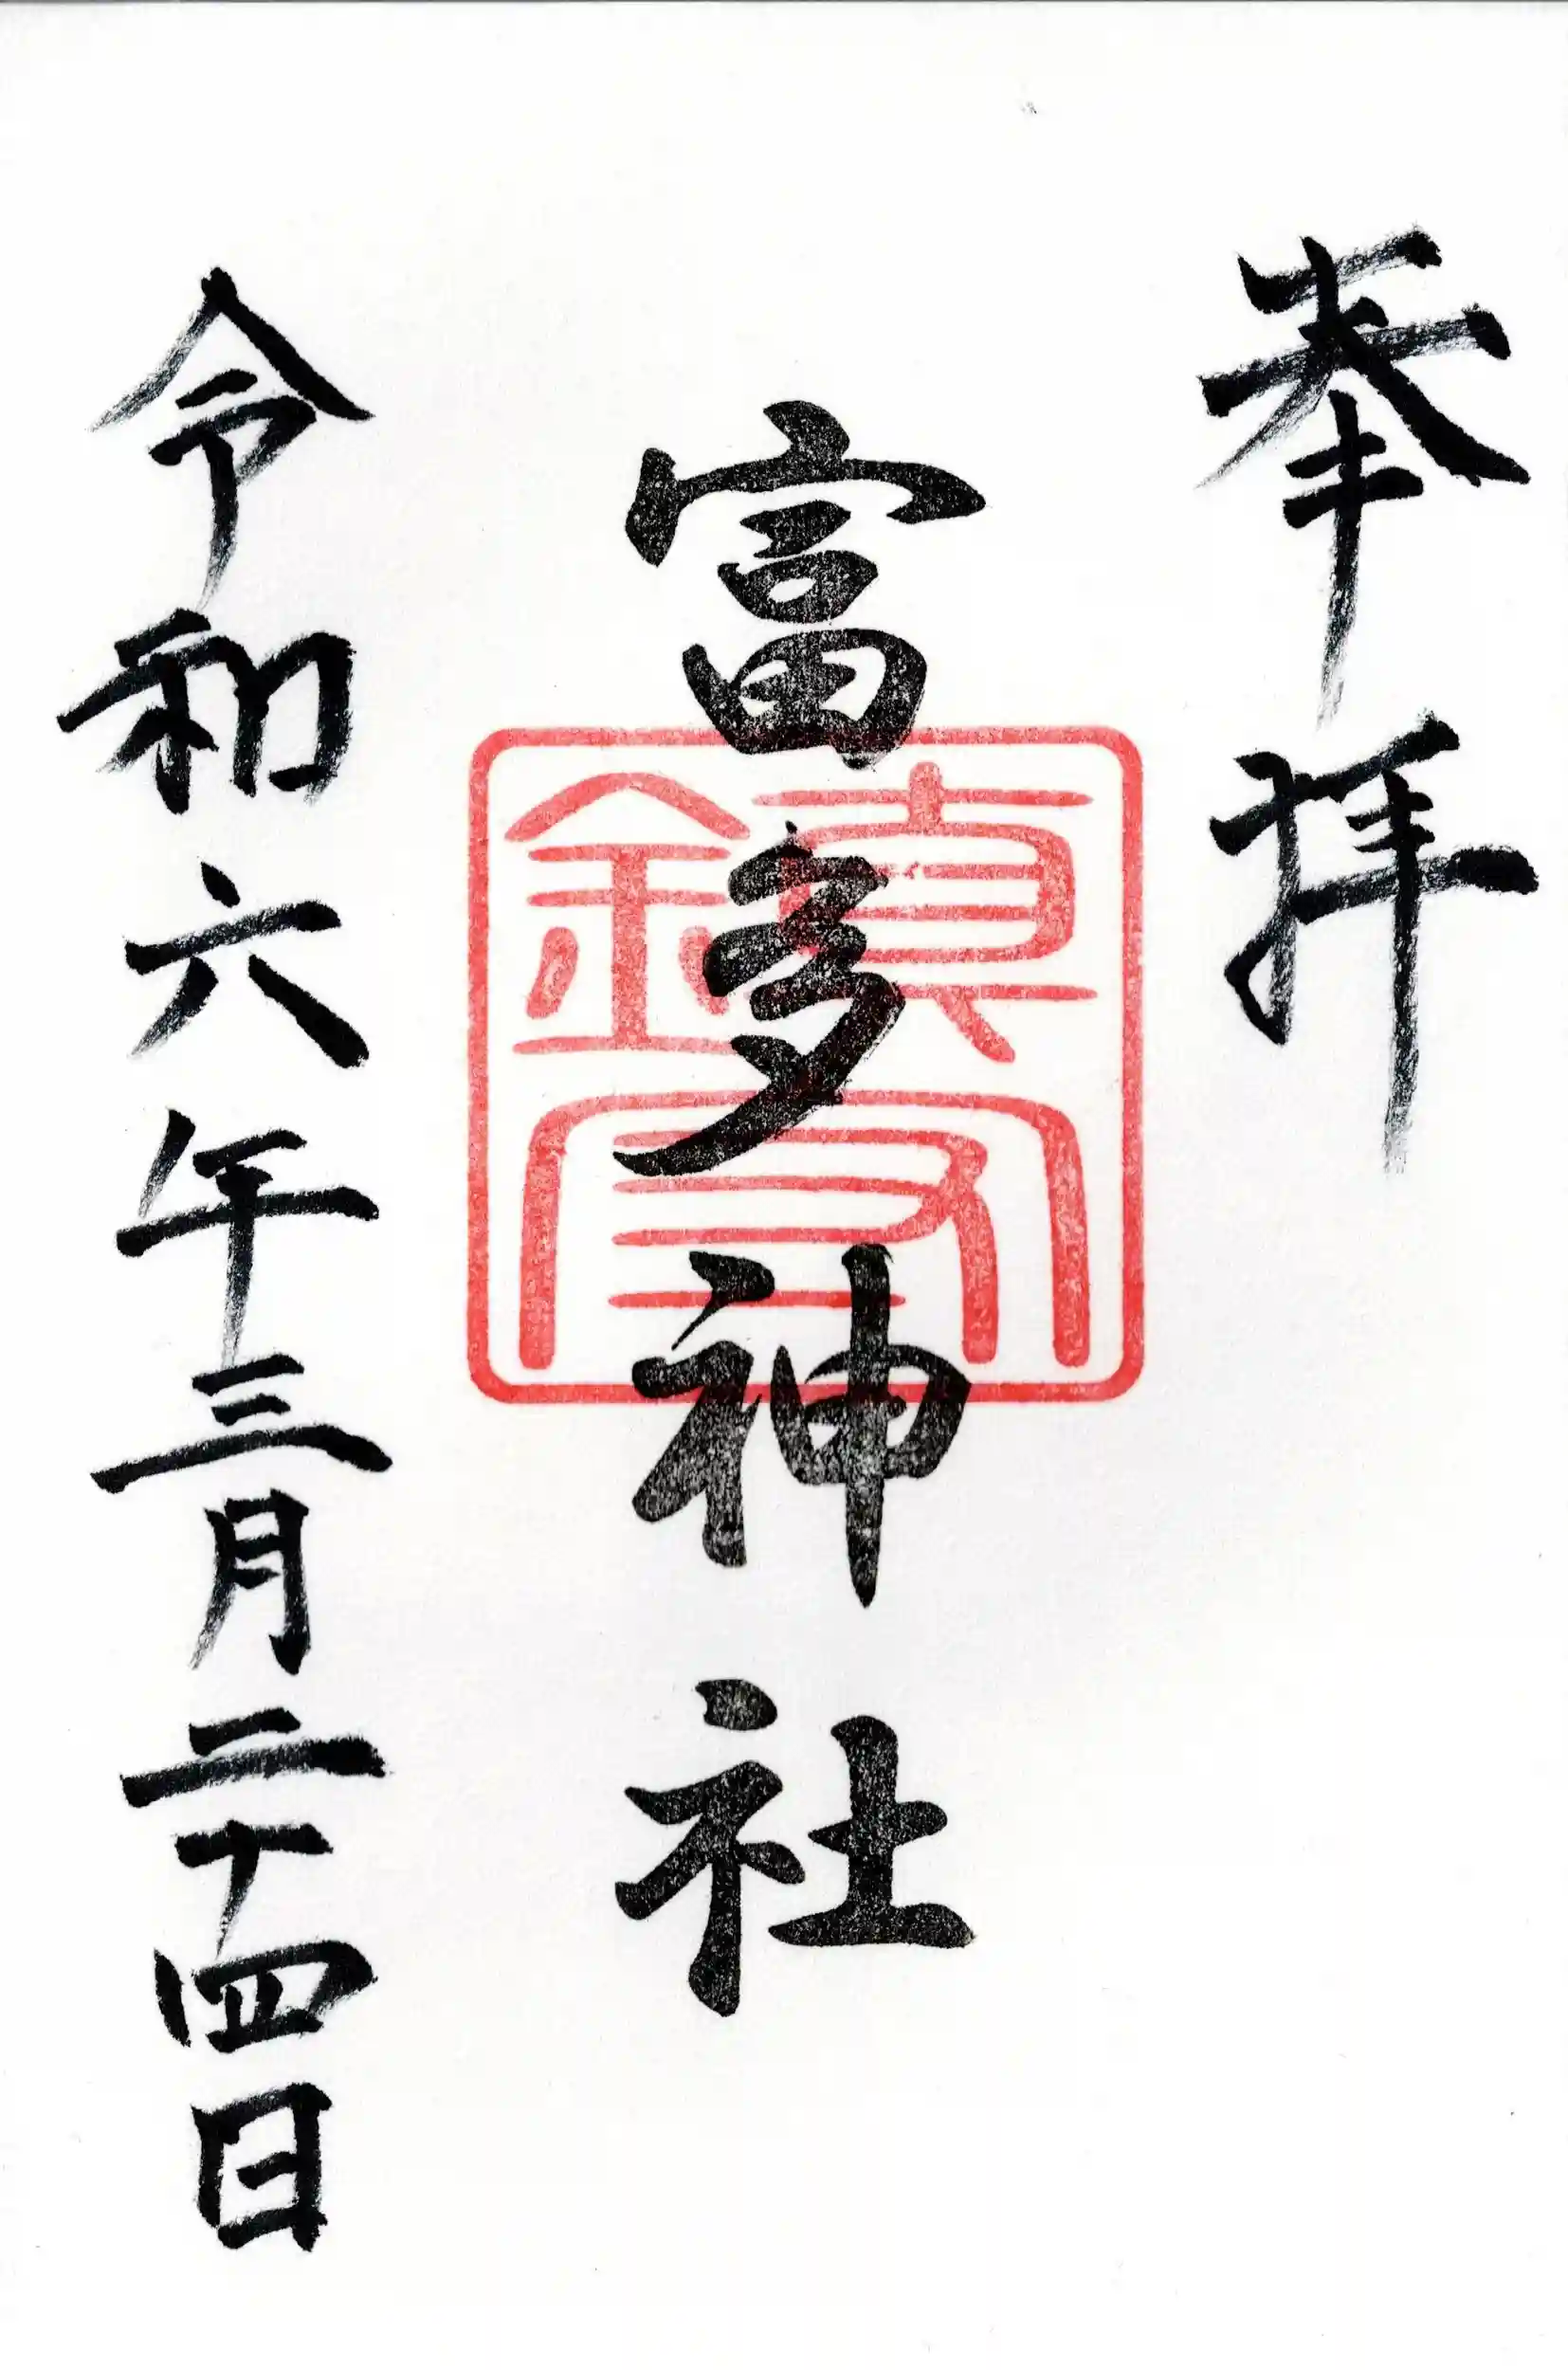 奉拝
富多神社
鎮守
令和六年三月二十四日